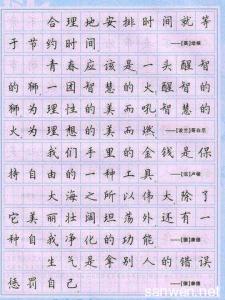 合理地安排时间就等
于节约时间
——[英]培根
青春应该是一头醒智
的狮一团智慧的火醒智
的狮为理性的美而吼智慧的
火为理想的美而燃
——[波兰]哥白尼
我们手里的金钱是保
持自由的一种工具 ——[法]卢梭
大海之所以伟大除了
它美丽壮阔坦荡外还有一
种自我净化的功能 ——[德]康德
生气是拿别人的错误
惩罚自己 ——[德]康德
sanwen.net